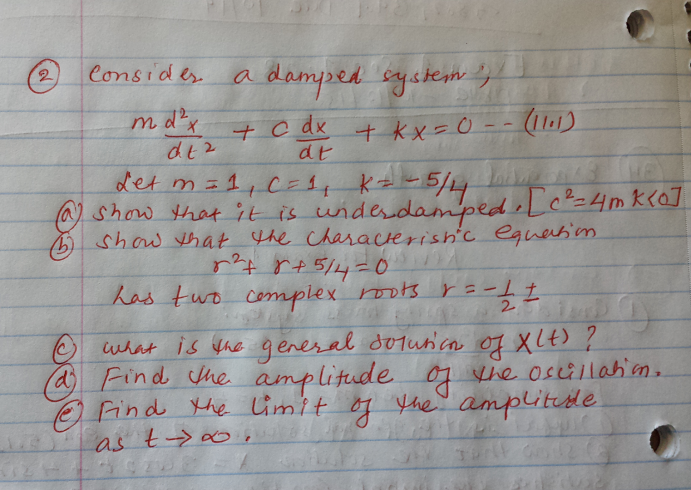 ② Consider a damped system ;
m d²x/dt² + c dx/dt + kx = 0 -- (11.1)
Let m = 1, c = 1, k = - 5/4
ⓐ show that it is underdamped. [c² = 4m k<0]
ⓑ show that the characteristic equation
r² + r + 5/4 = 0
has two complex roots r = - 1/2 ±
ⓒ what is the general solution of x(t) ?
ⓓ Find the amplitude of the oscillation.
ⓔ Find the limit of the amplitude
as t → ∞ .